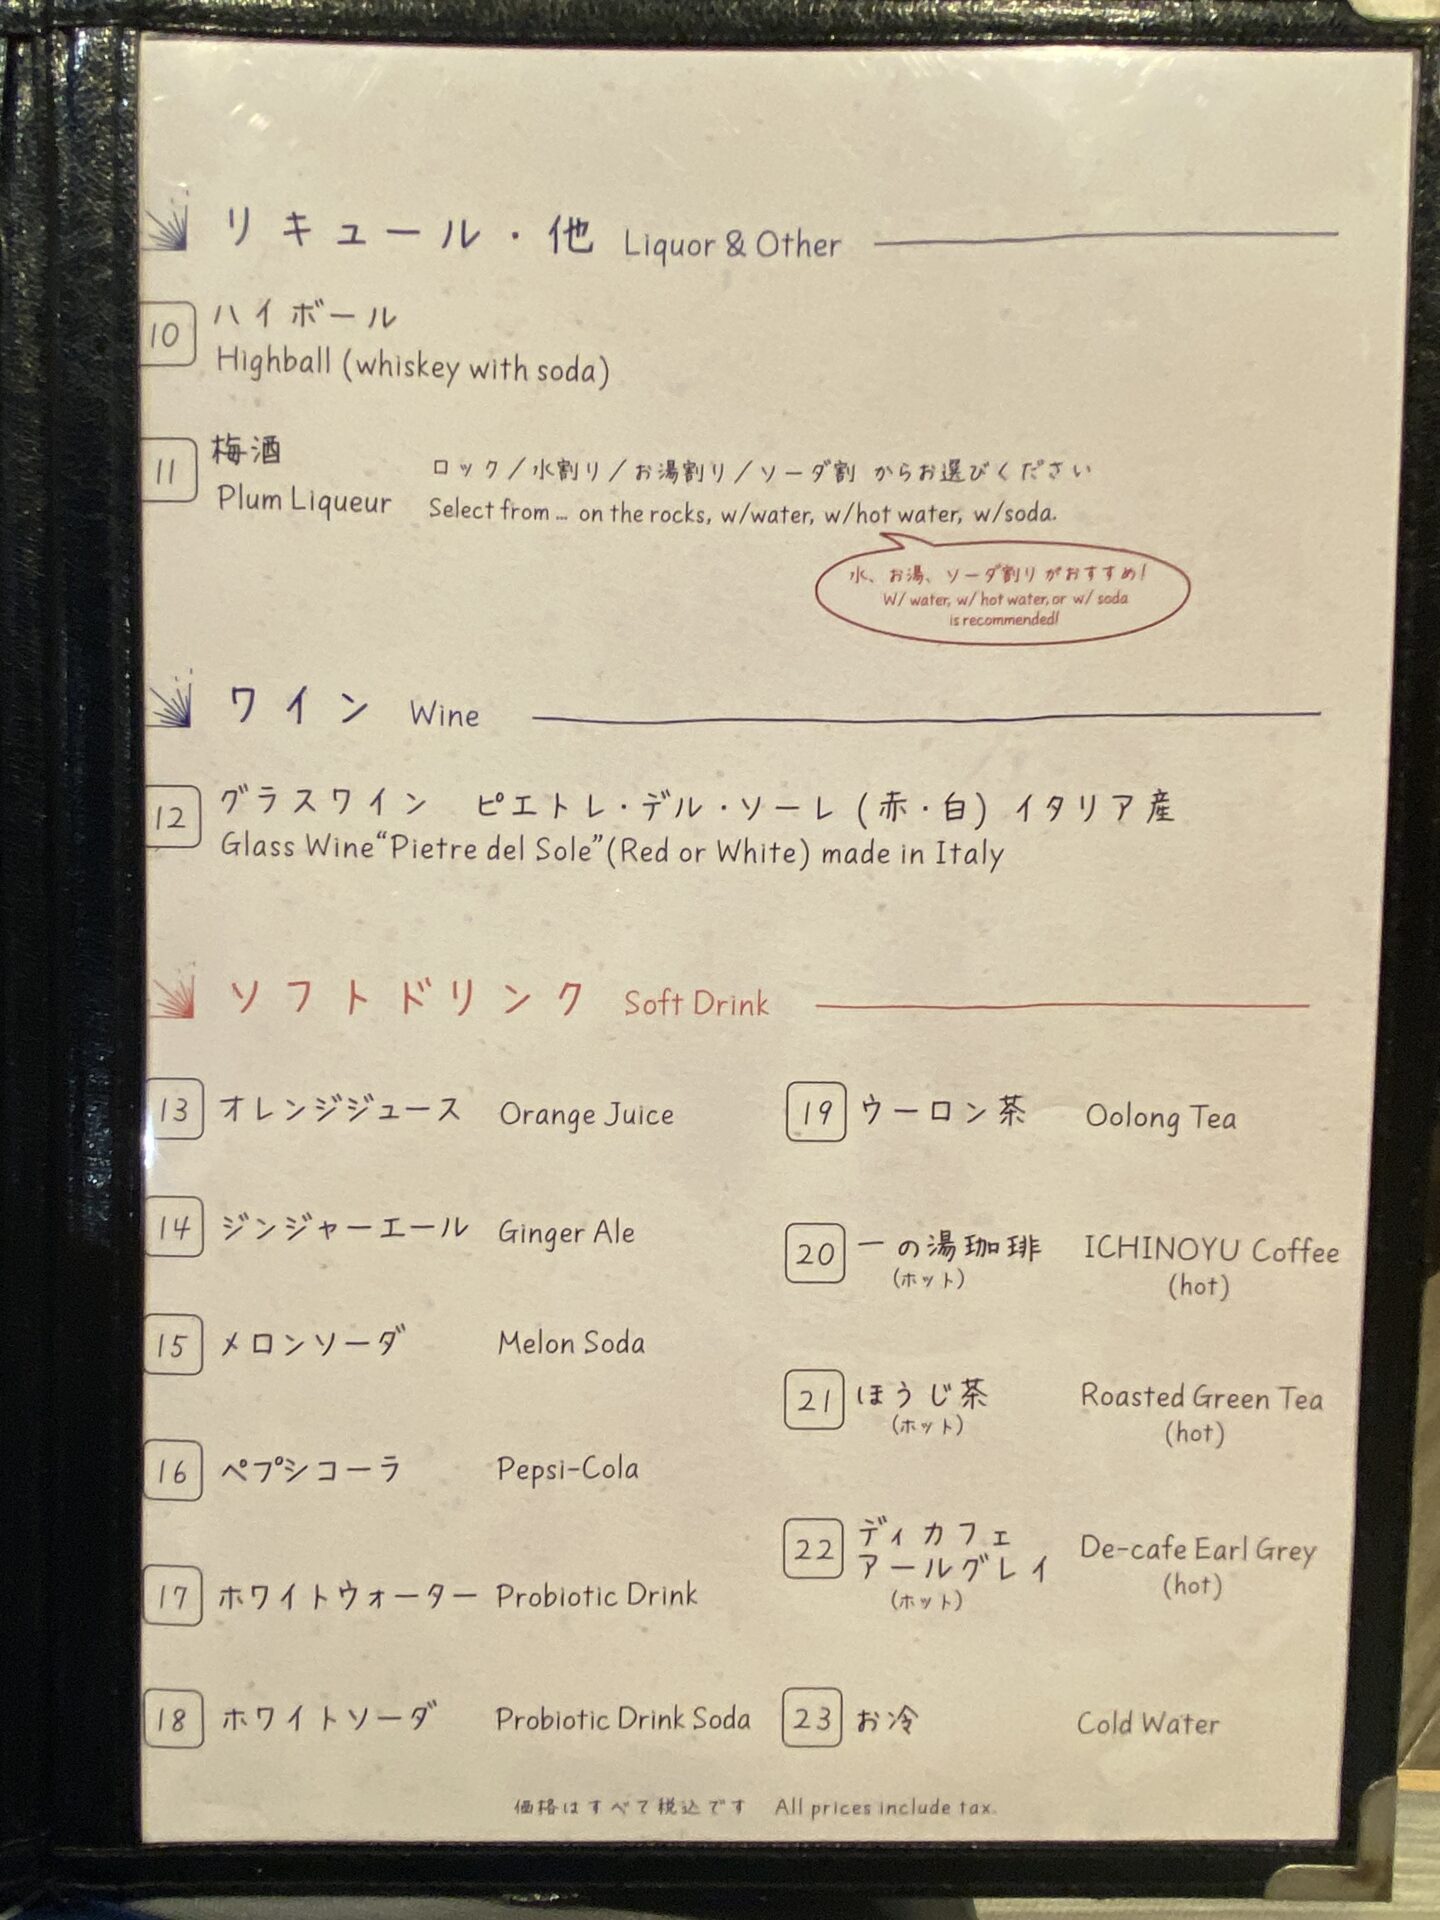 リキュール・他 Liquor & Other
10 ハイボール
Highball (whiskey with soda)
11 梅酒
Plum Liqueur
ロック／水割り／お湯割り／ソーダ割 からお選びください
Select from ... on the rocks, w/water, w/hot water, w/soda.
水、お湯、ソーダ割りがおすすめ!
W/ water, w/ hot water, or w/ soda
is recommended!
ワイン Wine
12 グラスワイン ピエトレ・デル・ソーレ (赤・白) イタリア産
Glass Wine“Pietre del Sole”(Red or White) made in Italy
ソフトドリンク Soft Drink
13 オレンジジュース Orange Juice
14 ジンジャーエール Ginger Ale
15 メロンソーダ Melon Soda
16 ペプシコーラ Pepsi-Cola
17 ホワイトウォーター Probiotic Drink
18 ホワイトソーダ Probiotic Drink Soda
19 ウーロン茶 Oolong Tea
20 一の湯珈琲 ICHINOYU Coffee
(ホット) (hot)
21 ほうじ茶 Roasted Green Tea
(ホット) (hot)
22 ディカフェ
アールグレイ De-cafe Earl Grey
(ホット) (hot)
23 お冷 Cold Water
価格はすべて税込です All prices include tax.